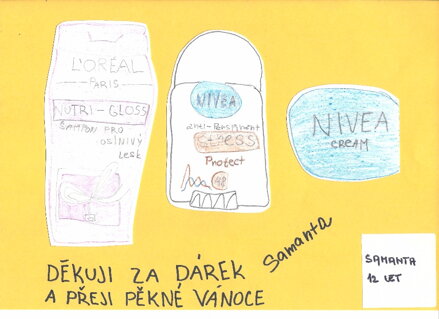 L'ORÉAL
PARIS
NUTRI-GLOSS
ŠAMPON PRO
OSLNIVÝ
LESK
NIVEA
anti-perspirant
STRESS
Protect
48
NIVEA
CREAM
Samanta
DĚKUJI ZA DÁREK
A PŘEJI PĚKNÉ VÁNOCE
SAMANTA
12 LET